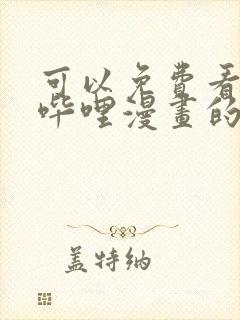 可以免費看
哔哩漫畫的
盖特纳